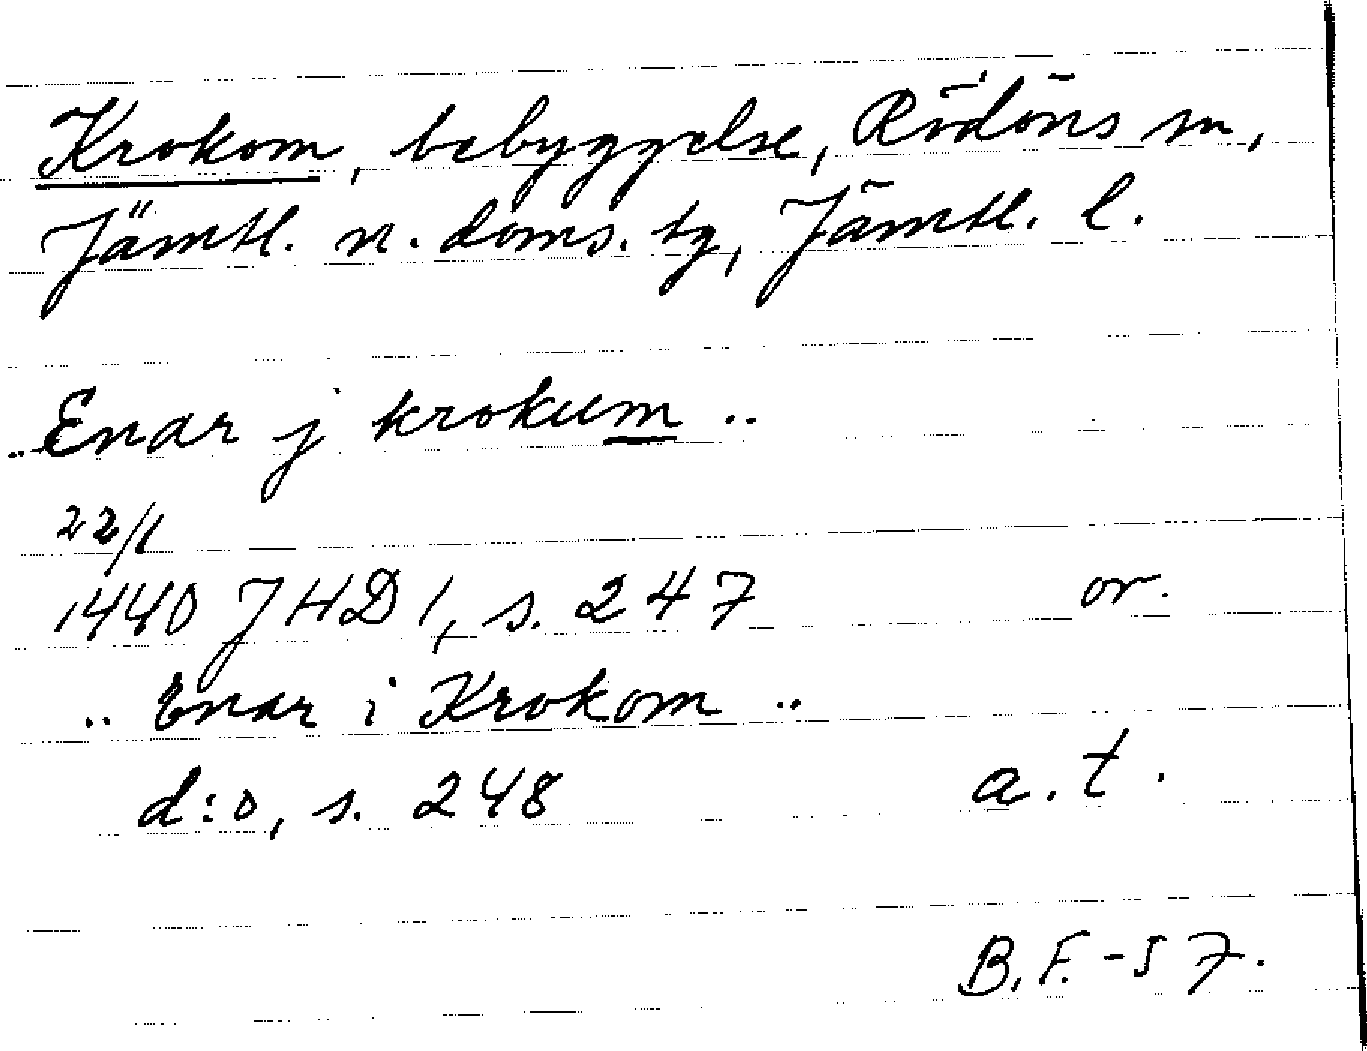 Krokom, bebyggelse, Rödöns sn,
Jämtl. n. doms. tg, Jämtl. l.
.. Enar j krokum ..
22/1
1440 JHD 1, s. 247 or.
.. Enar i Krokom ..
d:o, s. 248 a.t.
B.F. -57.